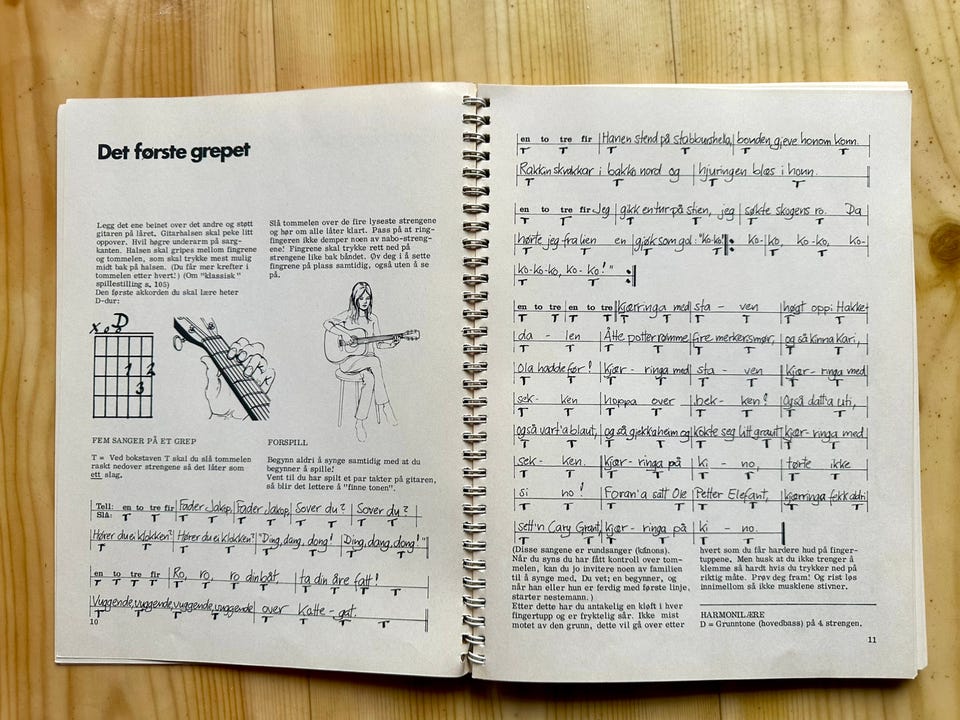 Det første grepet
Legg det ene beinet over det andre og støtt
gitaren på låret. Gitarhalsen skal peke litt
oppover. Hvil høgre underarm på sarg-
kanten. Halsen skal gripes mellom fingrene
og tommelen, som skal trykke mest mulig
midt bak på halsen. (Du får mer krefter i
tommelen etter hvert!) (Om "klassisk"
spillestilling s. 105)
Den første akkorden du skal lære heter
D-dur:
Slå tommelen over de fire lyseste strengene
og hør om alle låter klart. Pass på at ring-
fingeren ikke demper noen av nabo-streng-
ene! Fingrene skal trykke rett ned på
strengene like bak båndet. Øv deg i å sette
fingrene på plass samtidig, også uten å se
på.
D
x o
1 2
3
FEM SANGER PÅ ET GREP
T = Ved bokstaven T skal du slå tommelen
raskt nedover strengene så det låter som
ett slag.
FORSPILL
Begynn aldri å synge samtidig med at du
begynner å spille!
Vent til du har spilt et par takter på gitaren,
så blir det lettere å "finne tonen".
Tell: en to tre fir Fader Jakop, Fader Jakop, Sover du? Sover du?
Slå: T T T T T T T T T T T T
Hører du ei klokken? Hører du ei klokken? "Ding, dang, dong! Ding, dang, dong!"
T T T T T T T T
en to tre fir Ro, ro, ro din båt, ta din åre fatt!
T T T T T T T T
Vuggende, vuggende, vuggende, vuggende over Katte-gat.
T T T T
10
en to tre fir Hanen stend på stabburshella, bonden gjeve honom konn.
T T T T
Rakkin skvakkar i bakko nord og hjuringen blæs i honn.
T T T T
en to tre fir Jeg gikk en tur på stien, jeg søkte skogens ro. Da
T T T T T T
hørte jeg fra lien en gjøk som gol: "ko-ko! ko-ko, ko-ko, ko-
T T T T T T
ko-ko-ko, ko-ko!"
T T
en to tre en to tre kjærringa med sta - ven høgt oppi Hakke-
T T T T T T T T
da - len Åtte potter rømme fire merker smør, og så kinna Kari,
T T T T T T T T
Ola hadde før! kjær - ringa med sta - ven kjær - ringa med
T T T T T T T T
sek - ken hoppa over bek - ken! Også datt'a uti,
T T T T T T T T
også vart'a blaut, og så gjekk a heim og kokte seg litt graut kjær - ringa med
T T T T T T T T
sek - ken. kjær - ringa på ki - no, tørte ikke
T T T T T T T T
si no! Foran'a satt Ole Petter Elefant, kjærringa fekk aldri
T T T T T T T T
sett'n Cary Grant, kjær - ringa på ki - no.
T T T T T T
(Disse sangene er rundsanger (kánons).
Når du syns du har fått kontroll over tom-
melen, kan du jo invitere noen av familien
til å synge med. Du vet; en begynner, og
når han eller hun er ferdig med første linje,
starter nestemann.)
Etter dette har du antakelig en kløft i hver
fingertupp og er fryktelig sår. Ikke mist
motet av den grunn, dette vil gå over etter
hvert som du får hardere hud på finger-
tuppene. Men husk at du ikke trenger å
klemme så hardt hvis du trykker ned på
riktig måte. Prøv deg fram! Og rist løs
innimellom så ikke musklene stivner.
HARMONILÆRE
D = Grunntone (hovedbass) på 4. strengen.
11